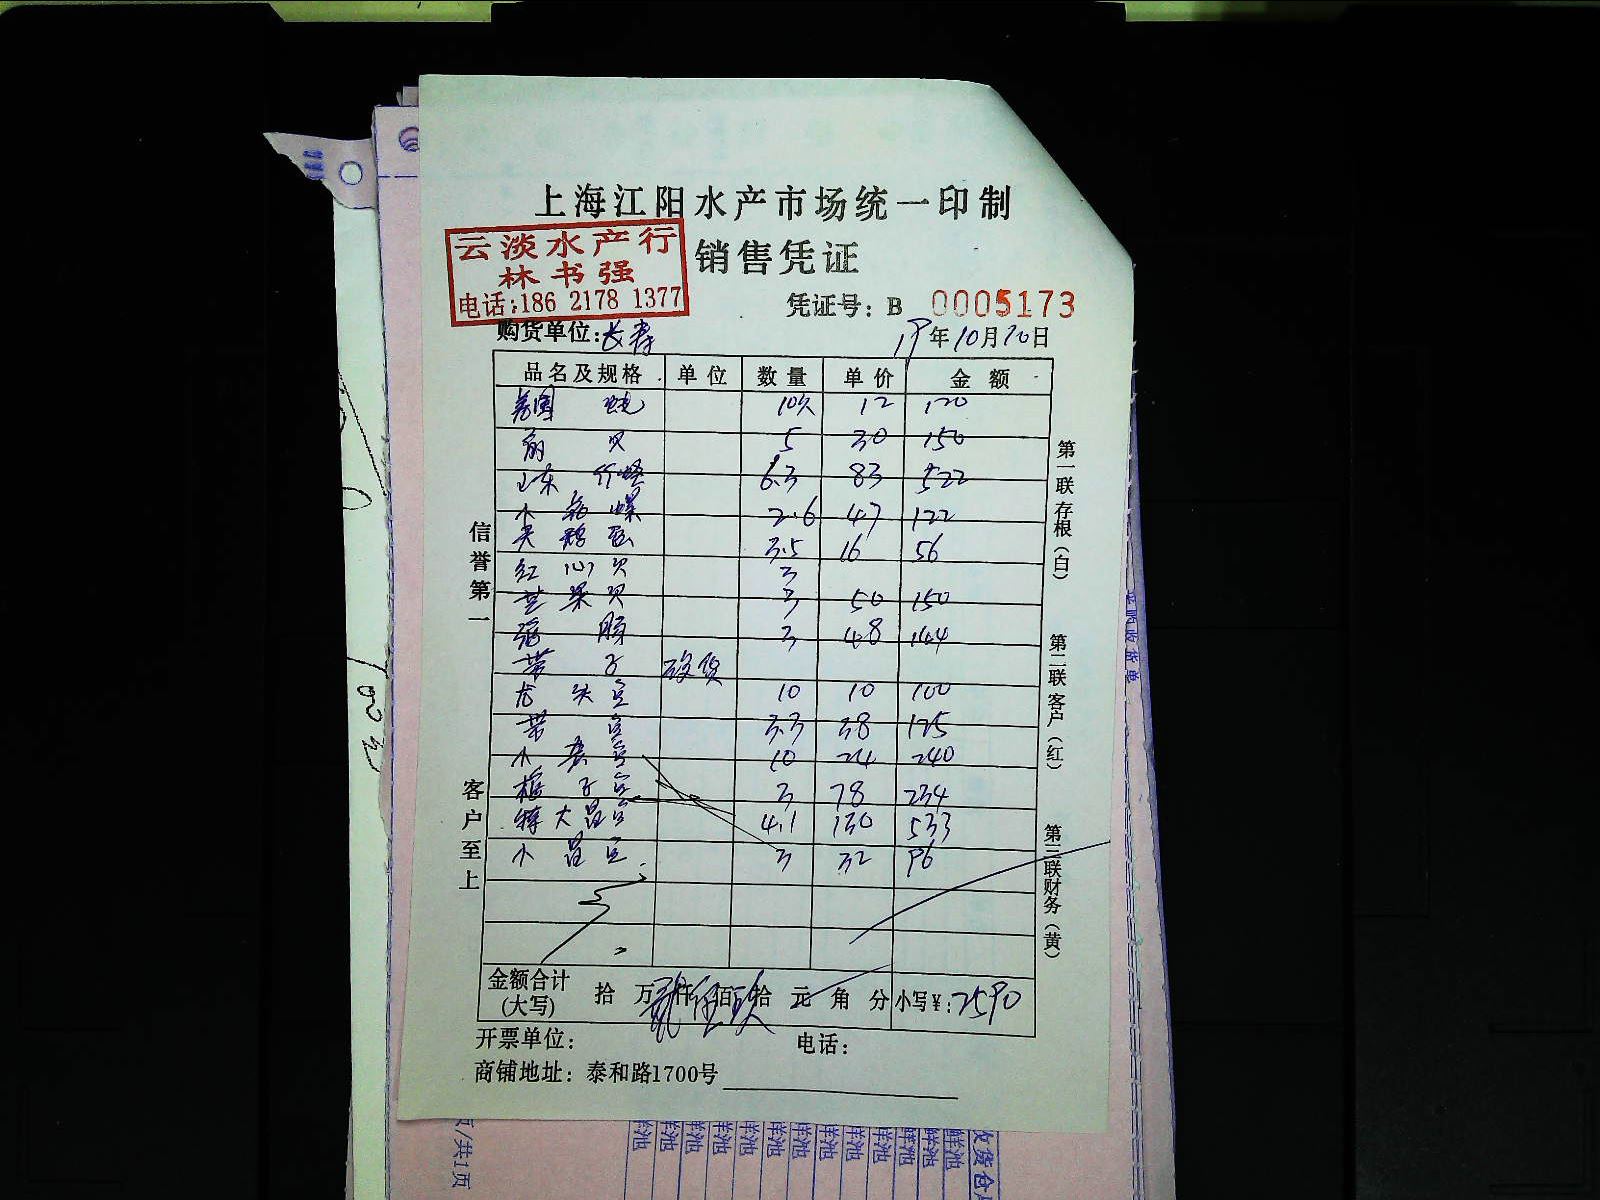 上海江阳水产市场统一印制
销售凭证
云淡水产行
林书强
电话:186 2178 1377
凭证号: B 0005173
购货单位: 长寿
19年10月20日
品名及规格 单位 数量 单价 金额
美国 蚝 10只 12 120
扇 贝 5 30 150
山东 竹蛏 6.3 83 522
小 花 螺 2.6 47 122
3.5 16 56
红 心 贝 3
芒果贝 3 50 150
3 48 144
带 子 破货
龙 头 10 10 100
带 3.3 38 125
小 黄 10 24 240
梳 子 3 78 234
特大昌 4.1 130 533
小 昌 3 32 96
金额合计
(大写)
拾 万 仟 佰 拾 元 角 分 小写¥: 2590
开票单位:
电话:
商铺地址: 泰和路1700号
信誉第一
客户至上
第一联存根(白)
第二联客户(红)
第三联财务(黄)
页/共1页
鲜池
收货仓